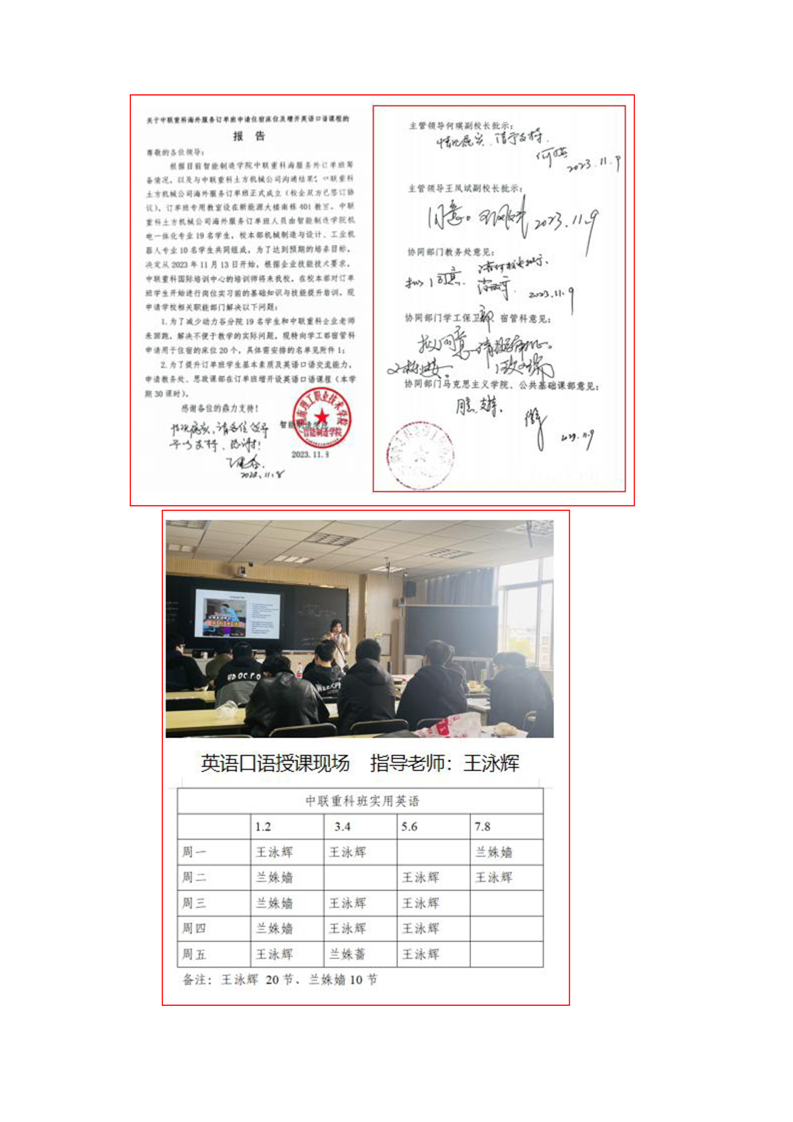 关于中联重科海外服务订单班申请住宿床位及增开英语口语课程的
报 告
尊敬的各位领导：
根据目前智能制造学院中联重科海服务外订单班筹
备情况，以及与中联重科土方机械公司沟通结果，中联重科
土方机械公司海外服务订单班正式成立（校企双方已签订协
议），订单班专用教室设在新能源大楼南栋 401 教室，中联
重科土方机械公司海外服务订单班人员由智能制造学院机
电一体化专业 19 名学生，校本部机械制造与设计、工业机
器人专业 10 名学生共同组成，为了达到预期的培养目标，
决定从 2023 年 11 月 13 日开始，根据企业技能技术要求，
中联重科国际培训中心的培训师将来我校，在校本部对订单
班学生开始进行岗位实习前的基础知识与技能提升培训，现
申请学校相关职能部门解决以下问题：
1.为了减少动力谷分院 19 名学生和中联重科企业老师
来回跑，解决不便于教学的实际问题，现特向学工部宿管科
申请用于住宿的床位 20 个，具体需安排的名单见附件 1；
2.为了提升订单班学生基本素质及英语口语交流能力，
申请教务处、思政课部在订单班增开设英语口语课程（本学
期 30 课时）。
感谢各位的鼎力支持！
智能制造学院
2023.11.8
情况属实，请各位领导
予以支持，感谢！
2023.11.8
主管领导何瑛副校长批示：
情况属实，请予支持。
何瑛
2023.11.9
主管领导王凤斌副校长批示：
同意。王凤斌 2023.11.9
协同部门教务处意见：
拟同意
2023.11.9
协同部门学工保卫部宿管科意见：
拟同意
协同部门马克思主义学院、公共基础课部意见：
同意支持。
2023.11.9
英语口语授课现场 指导老师：王泳辉
中联重科班实用英语
1.2 3.4 5.6 7.8
周一 王泳辉 王泳辉 兰姝嫱
周二 兰姝嫱 王泳辉 王泳辉
周三 兰姝嫱 王泳辉 王泳辉
周四 兰姝嫱 王泳辉 王泳辉
周五 王泳辉 兰姝蔷 王泳辉
备注：王泳辉 20 节、兰姝嫱 10 节